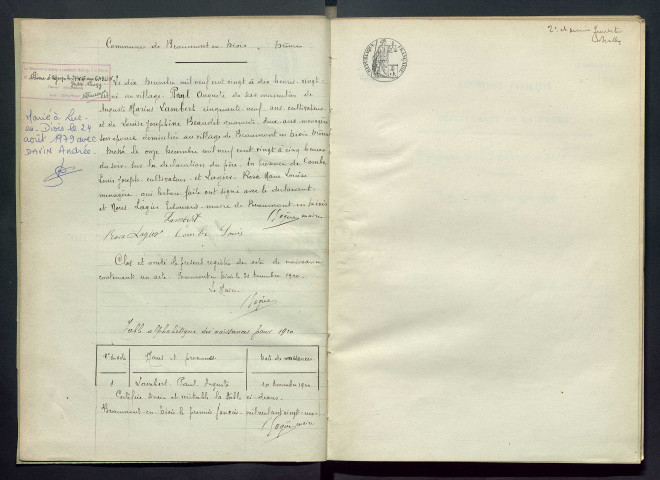 Commune de Beaumont en Diois. Drôme
Le dix décembre mil neuf cent vingt à dix heures vingt
est né au village Paul Auguste du sexe masculin de
Auguste Marius Lambert cinquante neuf ans cultivateur
et de Louise Joséphine Beaudet quarante deux ans ménagère
son épouse domiciliés au village de Beaumont en Diois Drôme
Dressé le onze décembre mil neuf cent vingt à cinq heures
du soir sur la déclaration du père. En présence de Combe
Louis Joseph cultivateur et Lagier Rose Marie Louise
ménagère qui lecture faite ont signé avec le déclarant
et Nous Lagier Edouard maire de Beaumont en Diois
Lambert
Lagier maire
Rose Lagier Combe Louis
Marié à Luc-
en-Diois le 24
août 1979 avec
DAVIN Andrée
Clos et arrêté le présent registre des actes de naissance
contenant un acte Beaumont en Diois le 31 décembre 1920.
Le Maire
Lagier
Table alphabétique des naissances pour 1920
N° d'ordre Noms et prénoms Date des naissances
1 Lambert Paul Auguste 10 décembre 1920
Certifiée vraie et véritable la table ci-dessus
Beaumont-en-Diois le premier janvier mil neuf cent vingt-un
Lagier maire
RÉPUBLIQUE FRANÇAISE
2e et dernier feuillet